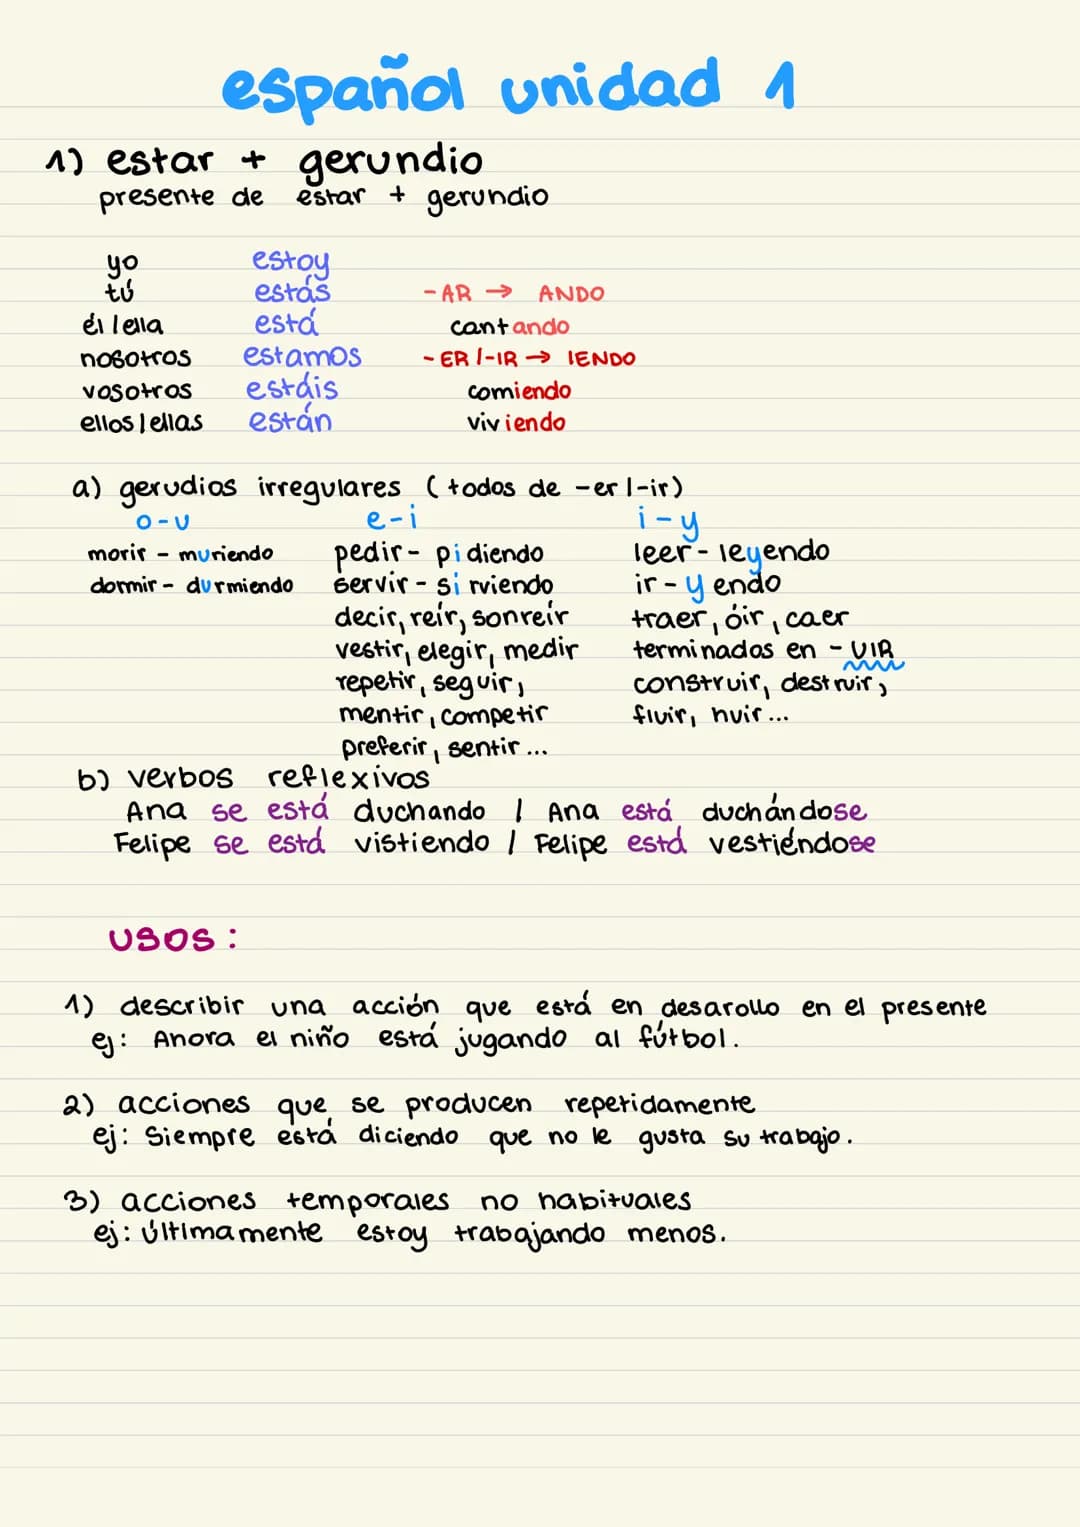 español unidad 1
1) estar + gerundio
presente de estar + gerundio
yo estoy
tú estás -AR → ANDO
él/ella está cantando
nosotros estamos -ER/-IR → IENDO
vosotros estáis comiendo
ellos/ellas están viviendo
a) gerudios irregulares (todos de -er/-ir)
o-u e-i i-y
morir - muriendo pedir - pidiendo leer - leyendo
dormir - durmiendo servir - sirviendo ir - yendo
decir, reír, sonreír traer, óir, caer
vestir, elegir, medir terminados en - UIR
repetir, seguir, construir, destruir,
mentir, competir fluir, huir...
preferir, sentir...
b) verbos reflexivos
Ana se está duchando / Ana está duchándose
Felipe se está vistiendo / Felipe está vestiéndose
usos:
1) describir una acción que está en desarollo en el presente
ej: Ahora el niño está jugando al fútbol.
2) acciones que se producen repetidamente
ej: Siempre está diciendo que no le gusta su trabajo.
3) acciones temporales no habituales
ej: últimamente estoy trabajando menos.